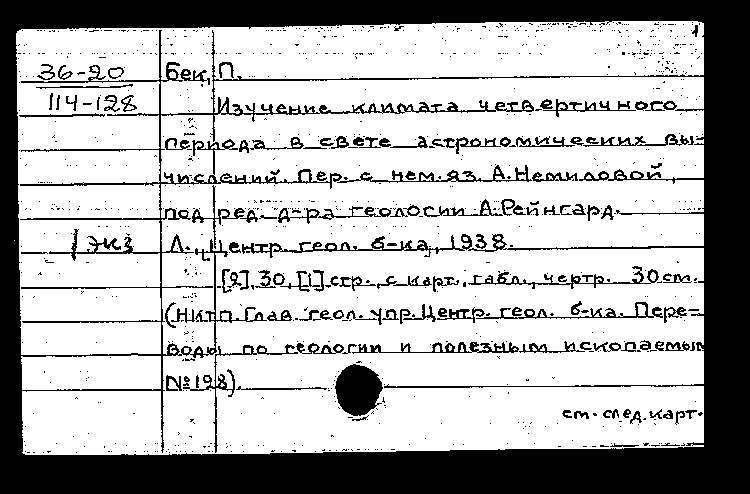 36-20 Бек, П.
114-128 Изучение климата четвертичного
периода в свете астрономических вы-
числений. Пер. с нем. яз. А. Немиловой,
под ред. д-ра геологии А. Рейнгард.
1 экз Л., [Центр. геол. б-ка], 1938.
[2], 30, [1] стр., с карт., табл., чертр. 30 см.
(НКТП. Глав. геол. упр. Центр. геол. б-ка. Пере-
воды по геологии и полезным ископаемым
№ 128).
см. след. карт.